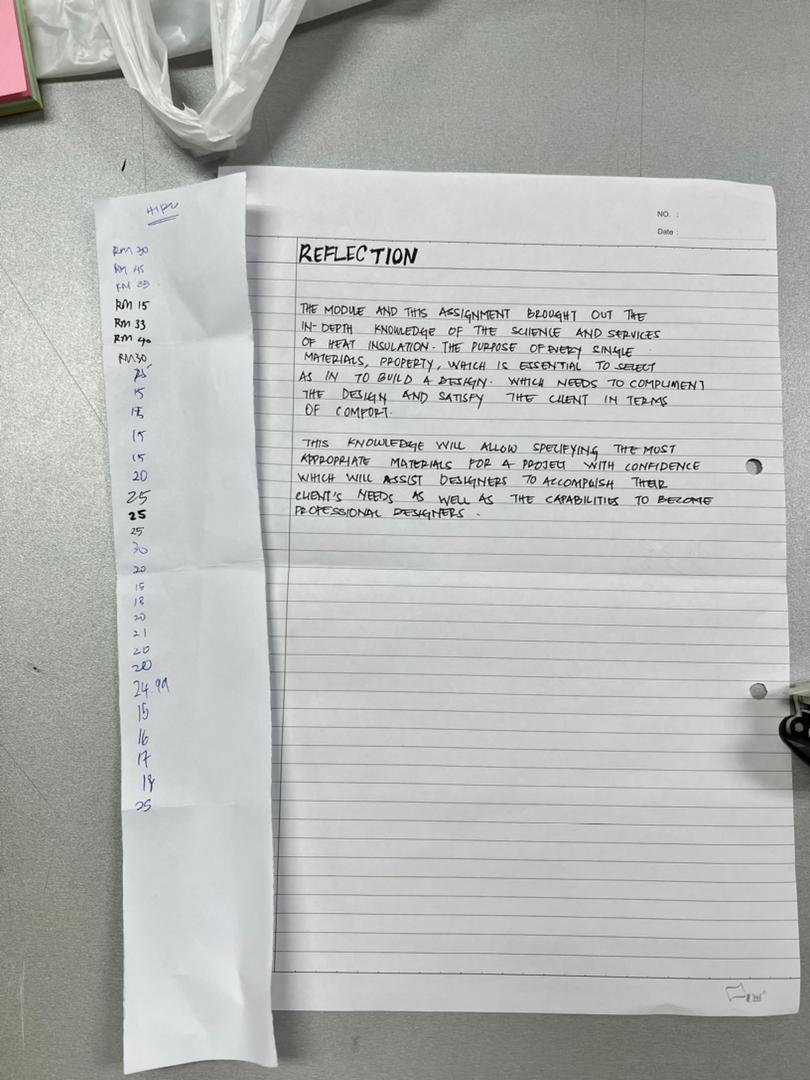 RM 30
RM 45
RM 15
RM 33
RM 40
RM30
25
15
15
15
15
20
25
25
25
30
20
15
18
20
21
20
20
24.99
15
16
17
18
25
NO. :
Date :
REFLECTION
THE MODULE AND THIS ASSIGNMENT BROUGHT OUT THE
IN-DEPTH KNOWLEDGE OF THE SCIENCE AND SERVICES
OF HEAT INSULATION. THE PURPOSE OF EVERY SINGLE
MATERIALS, PROPERTY, WHICH IS ESSENTIAL TO SELECT
AS IN TO BUILD A DESIGN. WHICH NEEDS TO COMPLIMENT
THE DESIGN AND SATISFY THE CLIENT IN TERMS
OF COMFORT.
THIS KNOWLEDGE WILL ALLOW SPECIFYING THE MOST
APPROPRIATE MATERIALS FOR A PROJECT WITH CONFIDENCE
WHICH WILL ASSIST DESIGNERS TO ACCOMPLISH THEIR
CLIENT'S NEEDS AS WELL AS THE CAPABILITIES TO BECOME
PROFESSIONAL DESIGNERS.